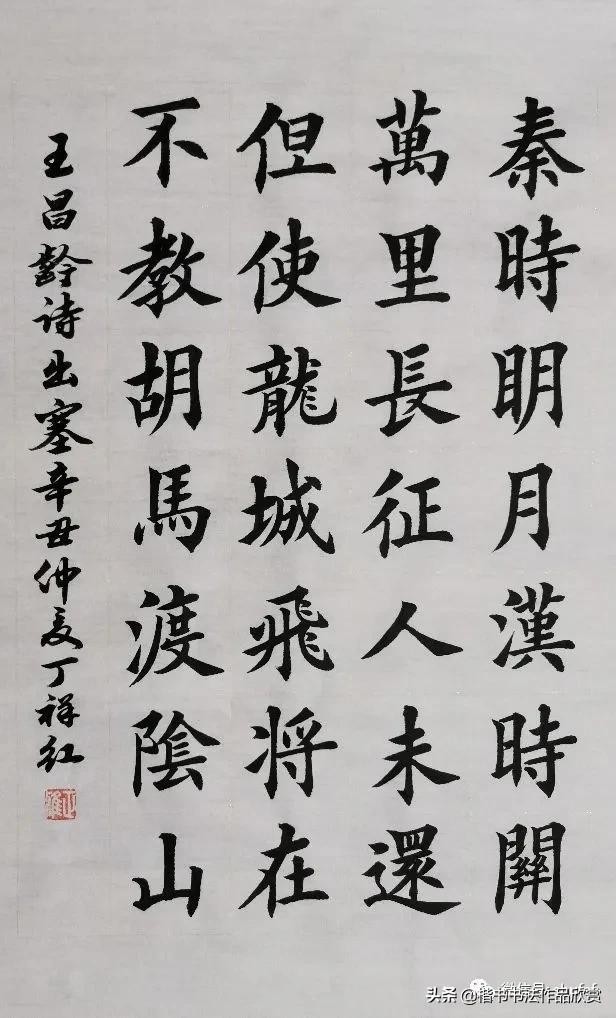 秦時明月漢時關
萬里長征人未還
但使龍城飛将在
不教胡馬渡陰山
王昌龄诗出塞辛丑仲夏丁祥红
头条 @楷书书法作品欣赏